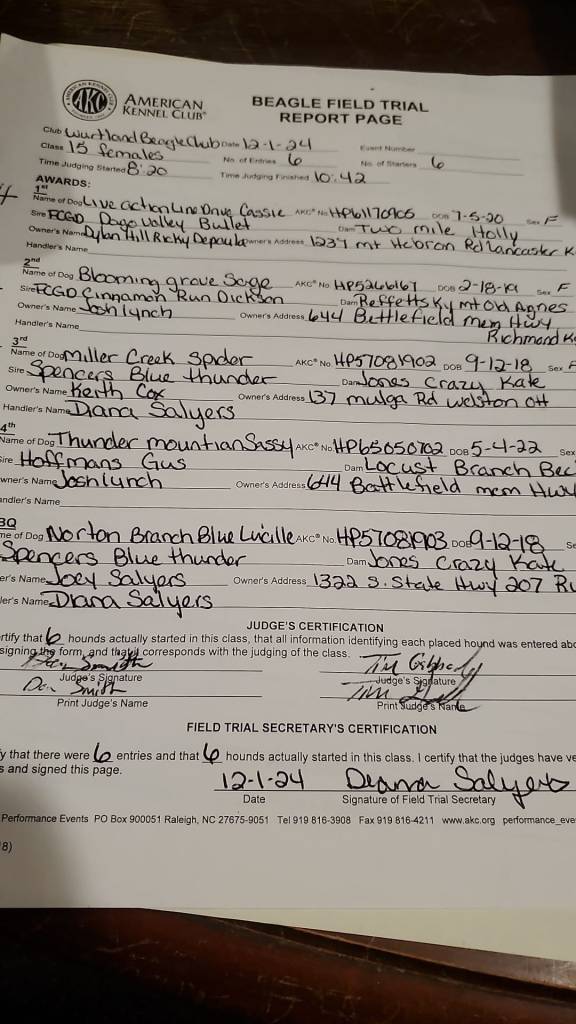 AKC AMERICAN KENNEL CLUB®
BEAGLE FIELD TRIAL REPORT PAGE
Club Wurtland Beagle Club Date 12-1-24 Event Number
Class 15 females No. of Entries 6 No. of Starters 6
Time Judging Started 8:20 Time Judging Finished 10:42
AWARDS:
1st
Name of Dog Live action Line Drive Cassie AKC® No. DOB 7-5-20 Sex F
Sire FCGD Dago Valley Bullet Dam Two mile Holly
Owner's Name Dylan Hill Ricky Depaula Owner's Address 1237 mt Hebron Rd Lancaster K
Handler's Name
2nd
Name of Dog Blooming grove Sage AKC® No. HP5246161 DOB 2-18-19 Sex F
Sire FCGD Cinnamon Run Dickson Dam Reffetts Ky mt Old Agnes
Owner's Name Josh lynch Owner's Address 644 Bettlefield mem Hwy
Handler's Name Richmond K
3rd
Name of Dog Miller Creek Spider AKC® No. HP57081902 DOB 9-12-18 Sex F
Sire Spencers Blue thunder Dam Jones Crazy Kate
Owner's Name Keith Cox Owner's Address 137 mulga Rd welston OH
Handler's Name Diana Salyers
4th
Name of Dog Thunder mountian Sassy AKC® No. HP65050702 DOB 5-4-22 Sex
ire Hoffmans Gus Dam Locust Branch Bec
wner's Name Josh lynch Owner's Address 644 Battlefield mem Hwy
andler's Name
BQ
me of Dog Norton Branch Blue Lucille AKC® No. HP57081903 DOB 9-12-18 Se
Spencers Blue thunder Dam Jones Crazy Kate
er's Name Joey Salyers Owner's Address 1322 S. State Hwy 207 Ru
ler's Name Diana Salyers
JUDGE'S CERTIFICATION
rtify that 6 hounds actually started in this class, that all information identifying each placed hound was entered abo
signing the form, and that it corresponds with the judging of the class.
Smith Tim
Judge's Signature Judge's Signature
Dan Smith Tim
Print Judge's Name Print Judge's Name
FIELD TRIAL SECRETARY'S CERTIFICATION
y that there were 6 entries and that 6 hounds actually started in this class. I certify that the judges have ve
s and signed this page.
12-1-24 Deanna Salyers
Date Signature of Field Trial Secretary
Performance Events PO Box 900051 Raleigh, NC 27675-9051 Tel 919 816-3908 Fax 919 816-4211 www.akc.org performance_eve
8)